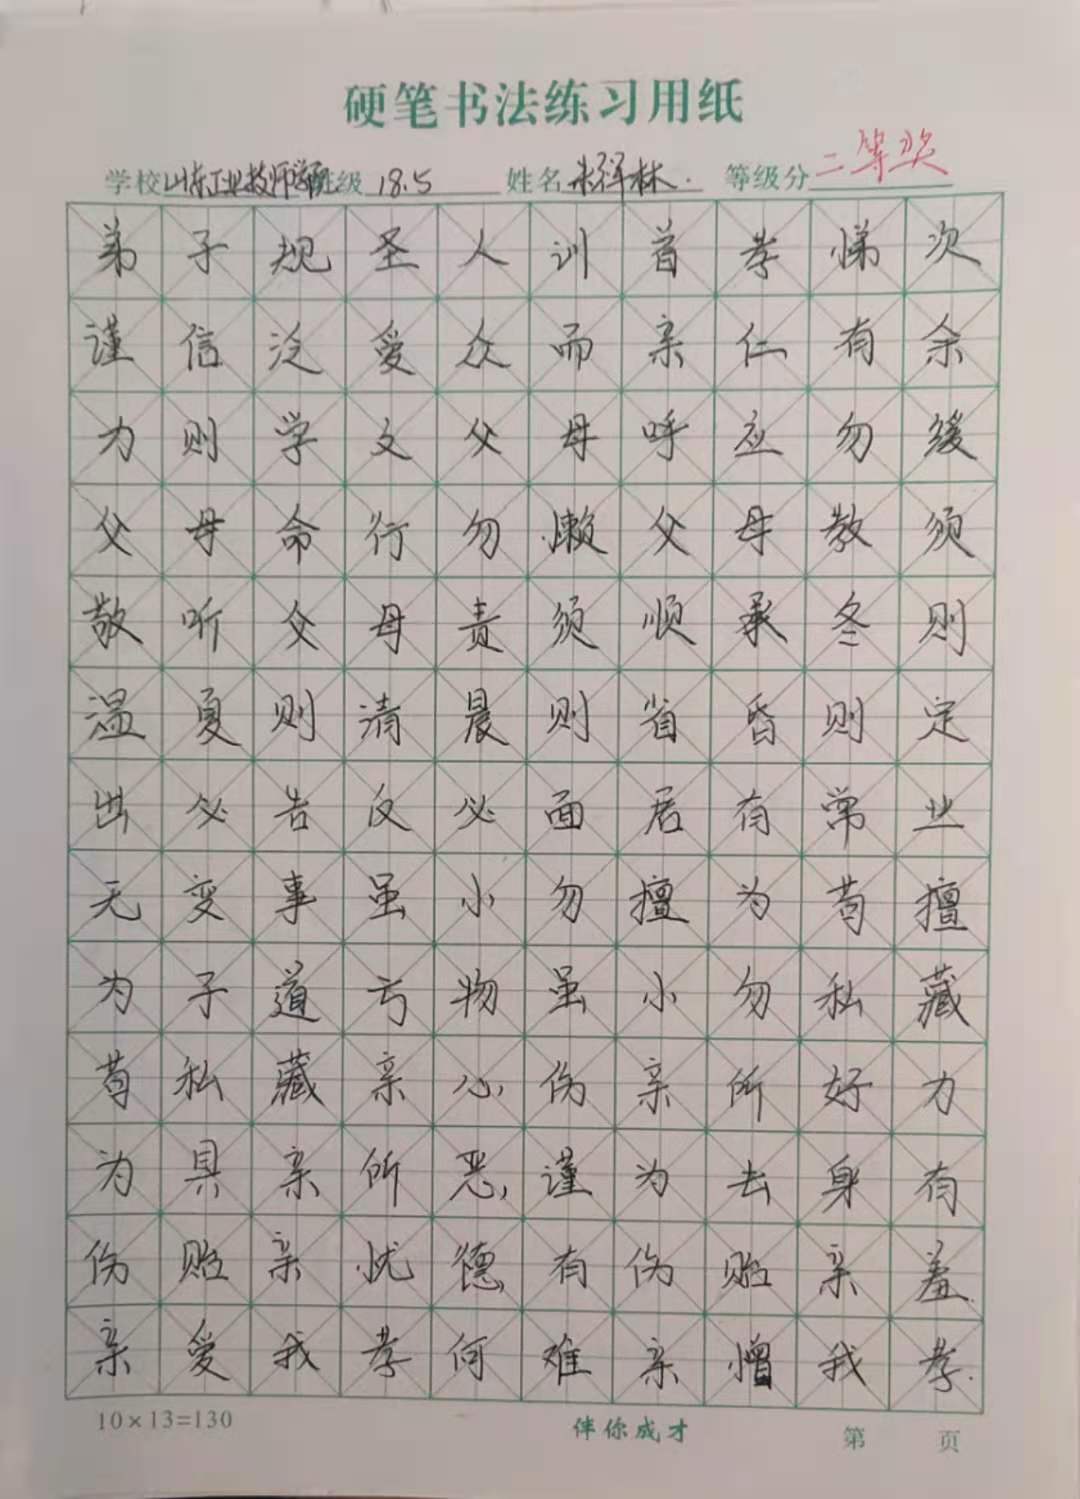 硬笔书法练习用纸
学校山东工业技师学院班级 18.5 姓名朱祥林. 等级分二等奖
弟子规圣人训首孝悌次
谨信泛爱众而亲仁有余
力则学文父母呼应勿缓
父母命行勿懒父母教须
敬听父母责须顺承冬则
温夏则清晨则省昏则定
出必告反必面居有常业
无变事虽小勿擅为苟擅
为子道亏物虽小勿私藏
苟私藏亲心伤亲所好力
为具亲所恶谨为去身有
伤贻亲忧德有伤贻亲羞
亲爱我孝何难亲憎我孝
10×13=130 伴你成才 第 页